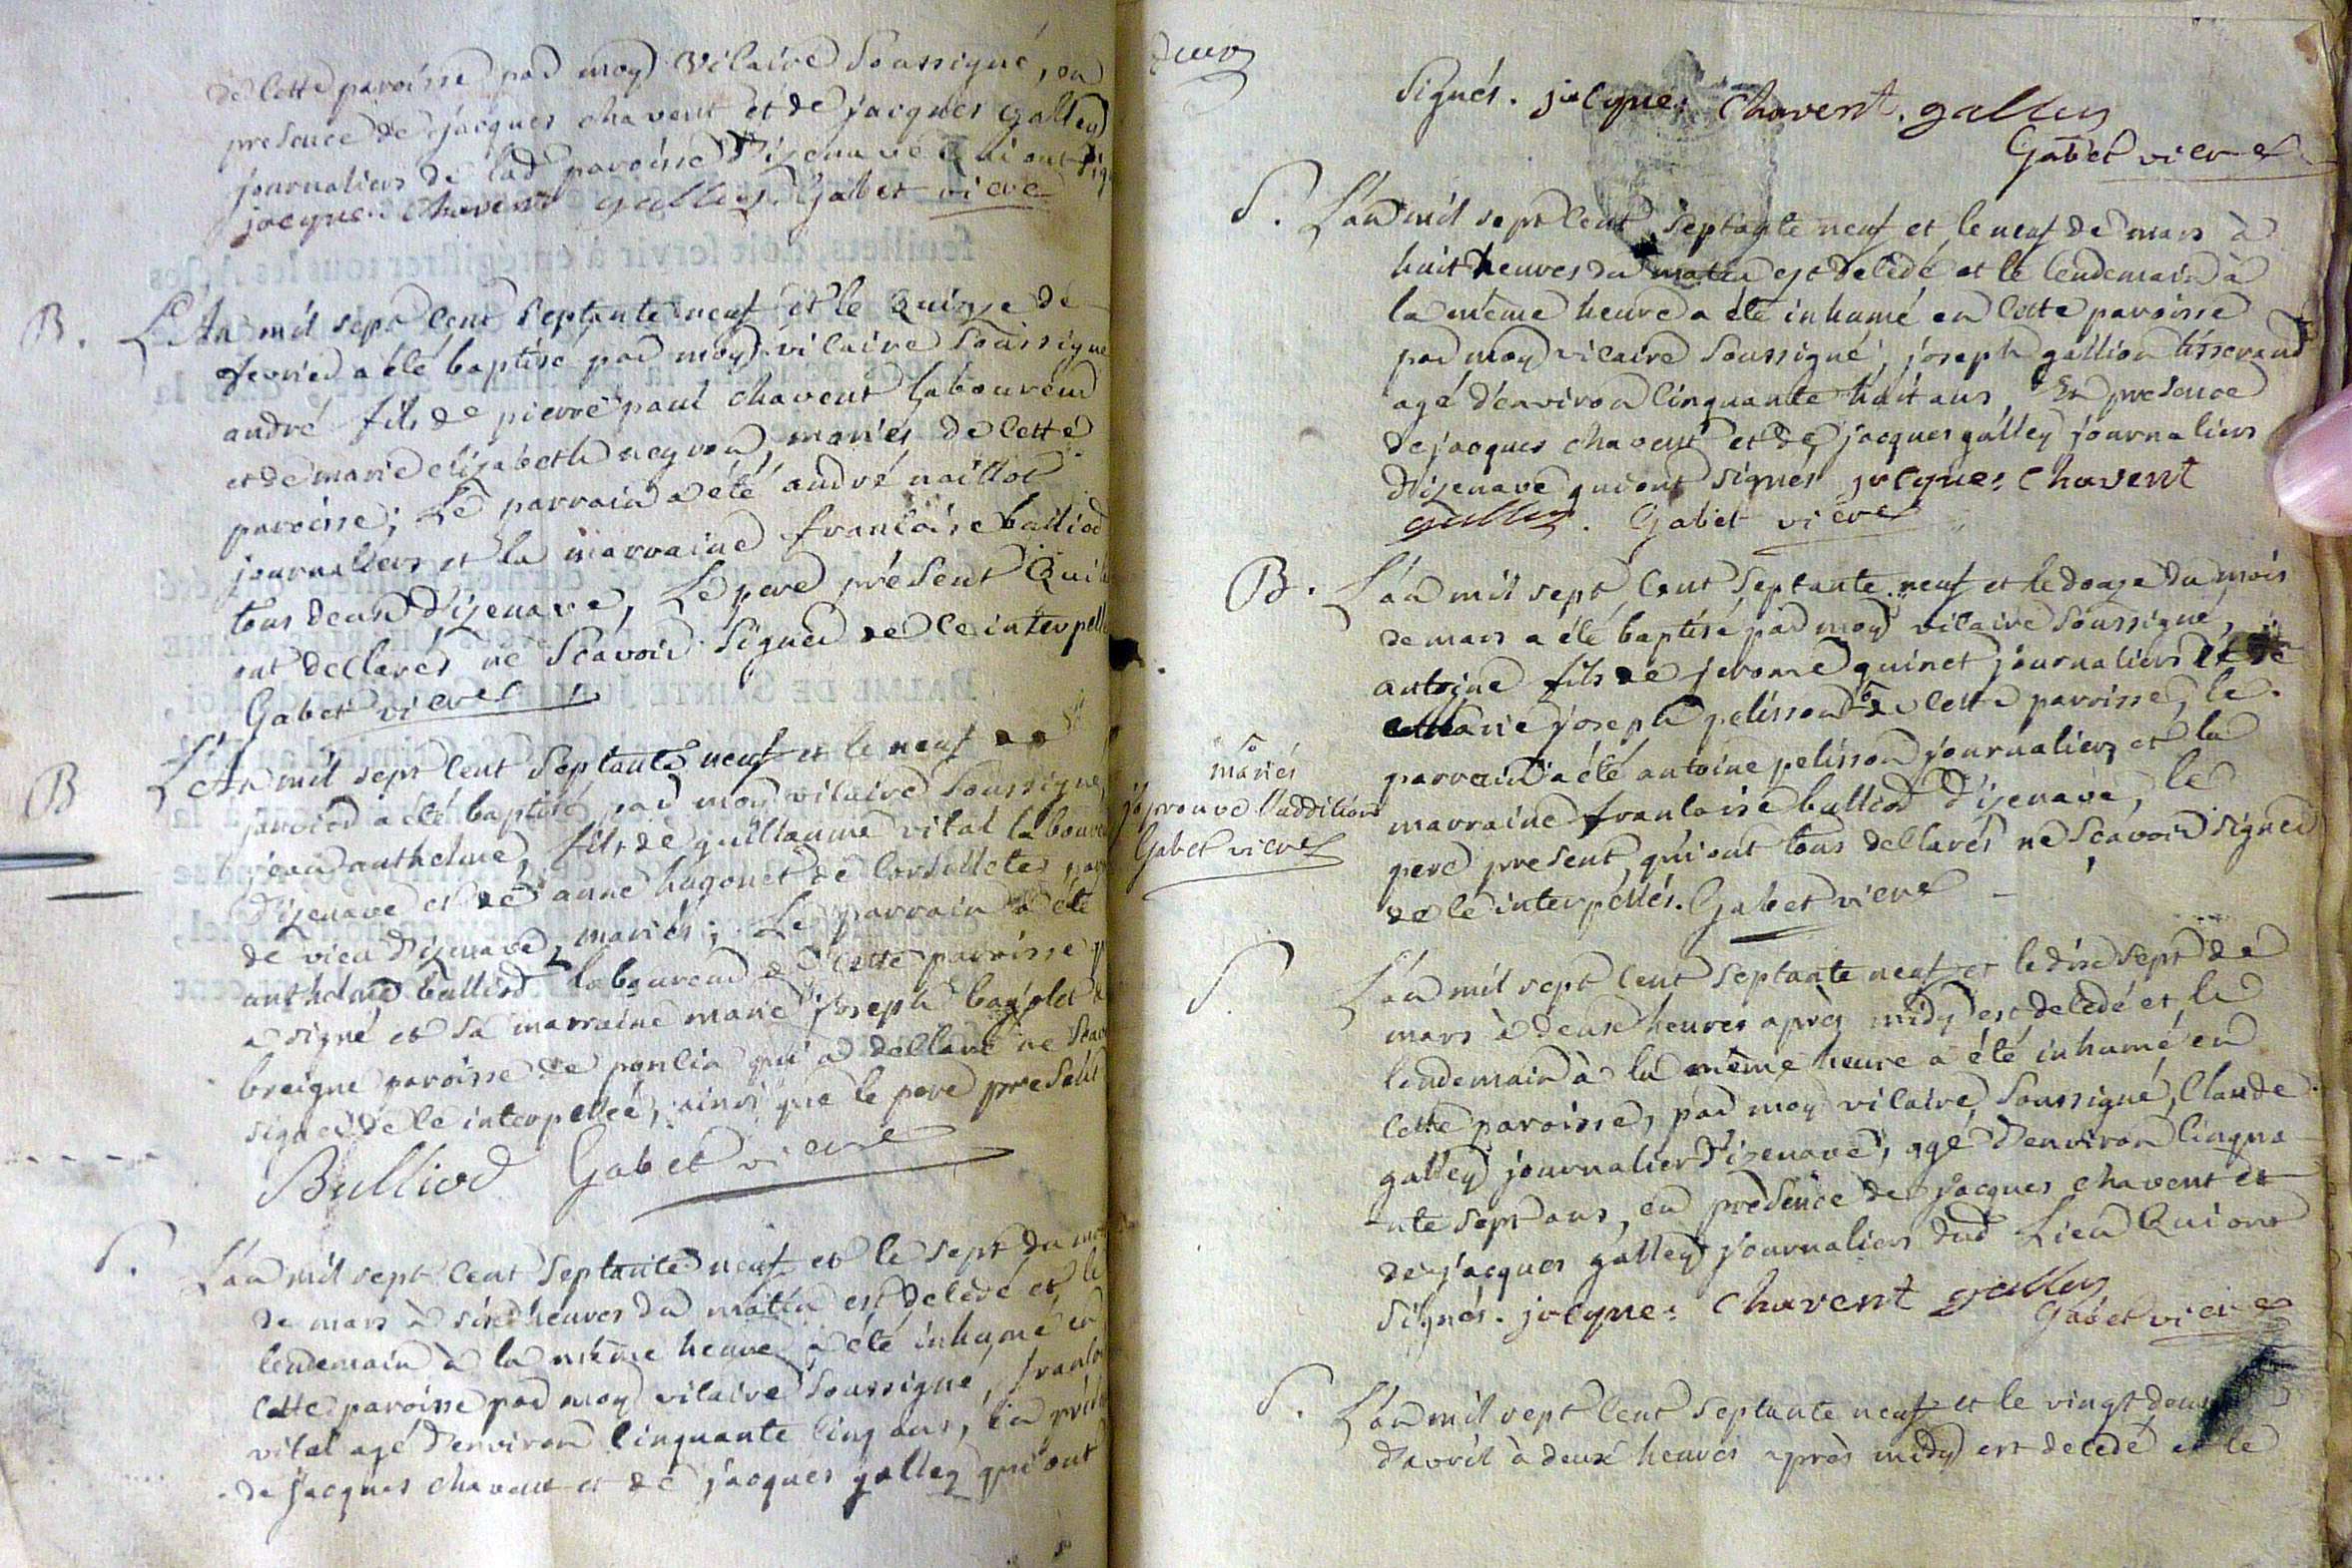 de cette paroisse par moy vicaire soussigné, en
presence de jacques chavent et de jacques galley
journaliers de lad paroisse d'izenave qui ont sig
jacques chavent galley. Gabet vicre
B. L'An mil sept cent septante neuf et le Quinze de
fevrier a été baptisé par moy vicaire soussigné
andré fils de pierre paul chavent laboureur
et de marie elizabeth neyron, mariés de cette
paroisse; Le parrain a été andré naillot
journaliers et la marraine francoise bulliod
tous deux d'izenave, Le pere présent Qui
ont declarés ne scavoir signer de ce interpell
Gabet vicre
B L'An mil sept cent septante neuf et le neuf de
janvier a été baptisé par moy vicaire soussigné,
jean anthelme, fils de guillaume vital laboureu
d'izenave et de anne hugonet de corcellete, par
de vieu d'izenave, mariés; Le parrain a été
anthelme bulliod laboureur de cette paroisse q
a signé et sa marraine marie joseph
breigne paroisse de poncin qui a declaré ne scav
signer de ce interpellée, ainsi que le pere présent
Bulliod Gabet vicre
S. L'an mil sept cent septante neuf et le sept du moi
de mars à six heures du matin est decedé et le
lendemain à la même heure a été inhumé en
cette paroisse par moy vicaire soussigné, franco
vital agé d'environ cinquante cinq ans, en prés
de jacques chavent et de jacques galley qui ont
deux
signés. jacques chavent. galley
Gabet vicre
S. L'an mil sept cent septante neuf et le neuf de mars à
huit heures du matin est decedé et le lendemain à
la même heure a été inhumé en cette paroisse
par moy vicaire soussigné, joseph gallion tisserand
agé d'environ cinquante huit ans, En presence
de jacques chavent et de jacques galley journaliers
d'izenave qui ont signés jacques chavent
galley. Gabet vicre
B. L'an mil sept cent septante neuf et le douze du mois
de mars a été baptisé par moy vicaire soussigné,
antoine fils de jerome guinet journaliers et de
marie joseph pelisson de cette paroisse, le
parrain a été antoine pelisson journaliers et la
marraine francoise bulliod d'izenave, le
pere present, qui ont tous declarés ne scavoir signer
de ce interpellés. Gabet vicre
mariés
j'aprouve l'addition
Gabet vicre
S. L'an mil sept cent septante neuf et le dix sept de
mars à deux heures après midy est decedé et le
lendemain à la même heure a été inhumé en
cette paroisse, par moy vicaire soussigné, Claude
galley journalier d'izenave, agé d'environ cinqua
nte sept ans, en presence de jacques chavent et
de jacques galley journaliers dud Lieu Qui ont
signés. jacques chavent galley
Gabet vicre
S. L'an mil sept cent septante neuf et le vingt deux
d'avril à deux heures après midy est decedé et le